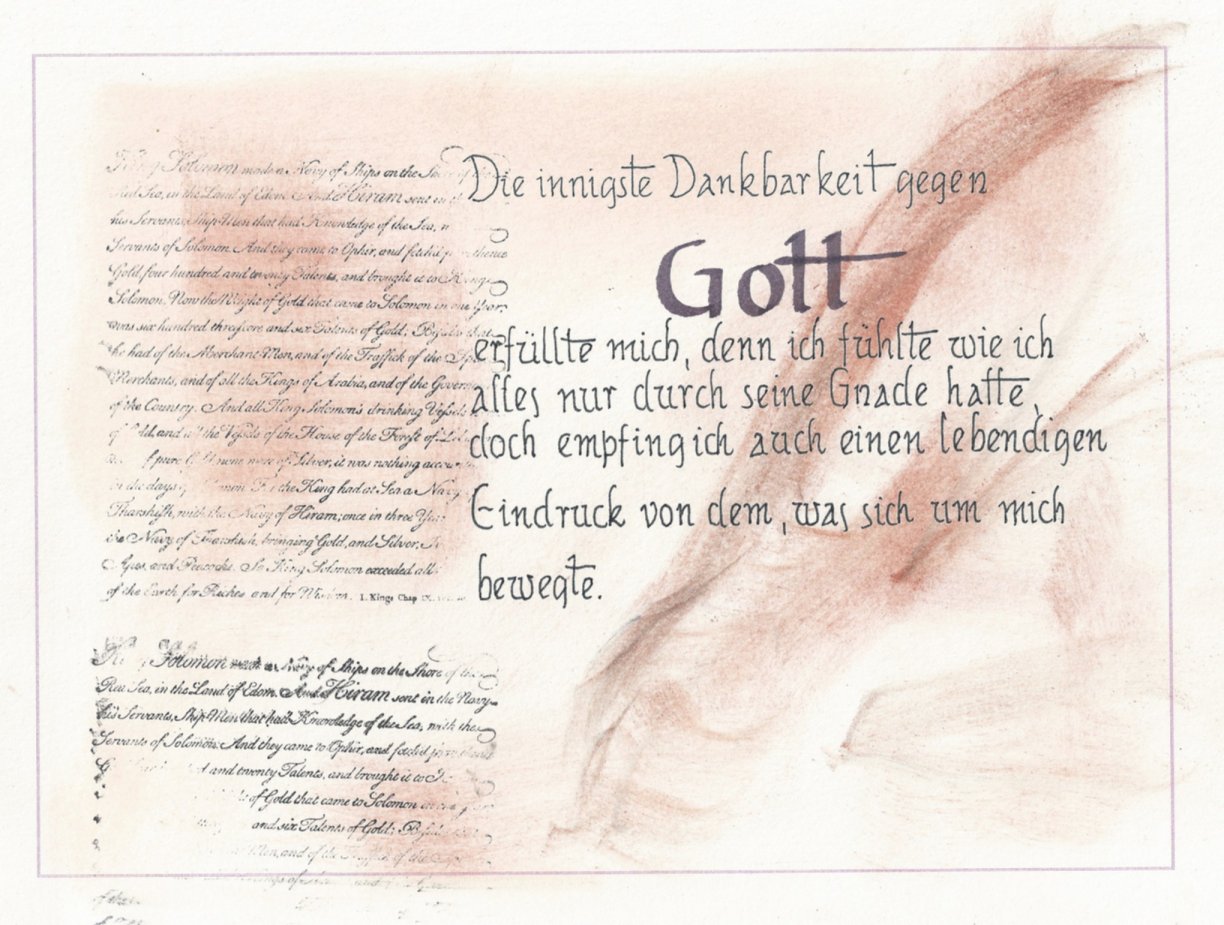 Die innigste Dankbarkeit gegen
Gott
erfüllte mich, denn ich fühlte wie ich
alles nur durch seine Gnade hatte,
doch empfing ich auch einen lebendigen
Eindruck von dem, was sich um mich
bewegte.
Solomon made a Navy of Ships on the
Red Sea, in the Land of Edom. And Hiram sent in
his Servants, Ship-Men that had Knowledge of the Sea,
Servants of Solomon. And they came to Ophir, and fetch'd thence
Gold, four hundred and twenty Talents, and brought it to King
Solomon. Now the Weight of Gold that came to Solomon in one Year,
was six hundred threescore and six Talents of Gold; Besides that
he had of the Merchant-Men, and of the Traffick of the
Merchants, and of all the Kings of Arabia, and of the
of the Country. And all King Solomon's drinking Vessels
and all the Vessels of the House of the Forest of
pure none were of Silver, it was nothing
in the days of the King had at Sea a Navy
Tharshish, with the Navy of Hiram; once in three
the Navy of Tharshish, bringing Gold, and Silver,
Apes, and Peacocks. So King Solomon exceeded all
of the Earth for Riches and for Wisdom. 1. Kings Chap
Solomon made a Navy of Ships on the Shore of the
Red Sea, in the Land of Edom. And Hiram sent in the Navy
his Servants, Ship-Men that had Knowledge of the Sea, with the
Servants of Solomon: And they came to Ophir, and fetch'd from
and twenty Talents, and brought it to
of Gold that came to Solomon
and six Talents of Gold; Besides
Men, and of the Traffick of the
of the